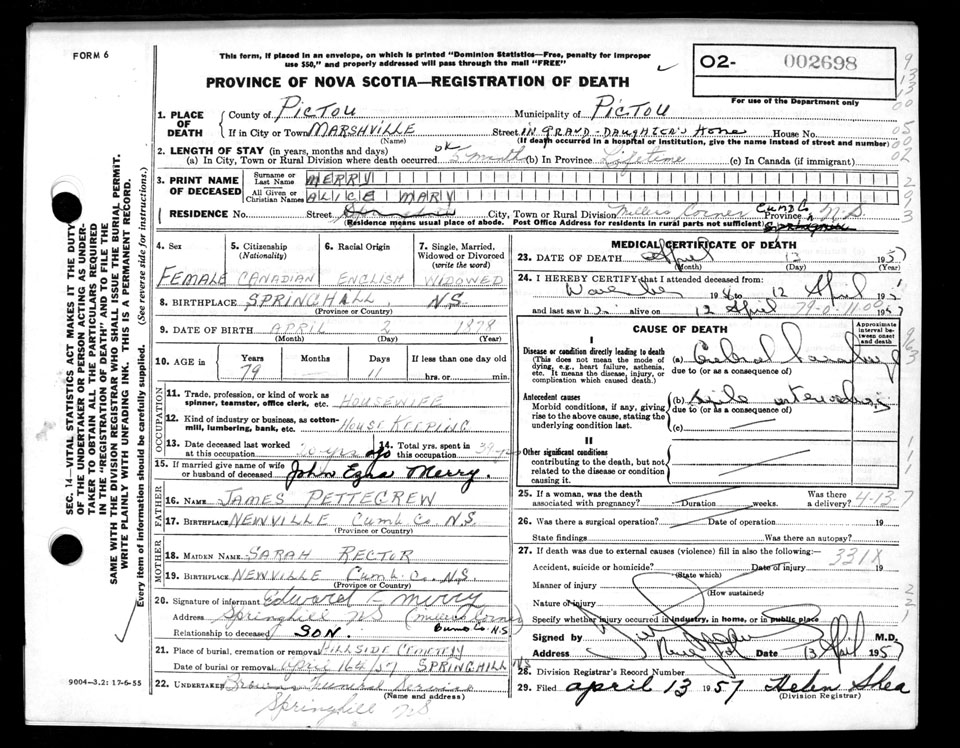 FORM 6
This form, if placed in an envelope, on which is printed "Dominion Statistics—Free, penalty for improper
use $50," and properly addressed will pass through the mail "FREE"
PROVINCE OF NOVA SCOTIA—REGISTRATION OF DEATH
O2- 002698
For use of the Department only
1. PLACE OF DEATH
County of PICTOU Municipality of PICTOU
If in City or Town MARSHVILLE Street IN GRAND-DAUGHTER'S HOME House No.
(Name) (If death occurred in a hospital or institution, give the name instead of street and number)
2. LENGTH OF STAY (in years, months and days)
(a) In City, Town or Rural Division where death occurred (b) In Province Lifetime (c) In Canada (if immigrant)
3. PRINT NAME OF DECEASED
Surname or Last Name MERRY
All Given or Christian Names ALICE MARY
RESIDENCE No. Street City, Town or Rural Division Millers Corner Cumb Co Province N.S.
(Residence means usual place of abode. Post Office Address for residents in rural parts not sufficient) Springhill
4. Sex 5. Citizenship (Nationality) 6. Racial Origin 7. Single, Married, Widowed or Divorced (write the word)
FEMALE CANADIAN ENGLISH WIDOWED
8. BIRTHPLACE SPRINGHALL N.S.
(Province or Country)
9. DATE OF BIRTH APRIL 2 1878
(Month) (Day) (Year)
10. AGE in Years Months Days If less than one day old
79 — 11 hrs. or min.
OCCUPATION
11. Trade, profession, or kind of work as spinner, teamster, office clerk, etc. HOUSEWIFE
12. Kind of industry or business, as cotton-mill, lumbering, bank, etc. HOUSE KEEPING
13. Date deceased last worked at this occupation yrs ago 14. Total yrs. spent in this occupation
15. If married give name of wife or husband of deceased John Ezna Merry.
FATHER
16. NAME JAMES PETTEGREW
17. BIRTHPLACE NEWVILLE Cumb Co N.S.
(Province or Country)
MOTHER
18. MAIDEN NAME SARAH RECTOR
19. BIRTHPLACE NEWVILLE Cumb. Co. N.S.
(Province or Country)
20. Signature of informant Edward F Merry
Address Springhill N.S (Millers Corner)
Cumb Co. N.S
Relationship to deceased SON.
21. Place of burial, cremation or removal HILLSIDE CEMETERY
Date of burial or removal April 16th/57 SPRINGHILL N/S
22. UNDERTAKER Browns Funeral Service
(Name and address)
Springhill N.S
MEDICAL CERTIFICATE OF DEATH
23. DATE OF DEATH April 13 1957
(Month) (Day) (Year)
24. I HEREBY CERTIFY that I attended deceased from
to 12 April 195
and last saw h alive on 12 April 1957
79-0-11-00
CAUSE OF DEATH
Approximate interval between onset and death
I
Disease or condition directly leading to death
(This does not mean the mode of dying, e.g., heart failure, asthenia, etc. It means the disease, injury, or complication which caused death.)
(a) Cerebral
due to (or as a consequence of)
Antecedent causes
Morbid conditions, if any, giving rise to the above cause, stating the underlying condition last.
(b)
due to (or as a consequence of)
(c)
II
Other significant conditions
contributing to the death, but not related to the disease or condition causing it.
25. If a woman, was the death associated with pregnancy? Duration weeks. Was there a delivery?
4-13-7
26. Was there a surgical operation? Date of operation 19
State findings Was there an autopsy?
27. If death was due to external causes (violence) fill in also the following:—
331X
Accident, suicide or homicide? Date of injury 19
(State which)
Manner of injury
(How sustained)
Nature of injury
Specify whether injury occurred in industry, in home, or in public place
Signed by M.D.
Address Date 13 April 1957
28. Division Registrar's Record Number
29. Filed april 13 1957 Helen Shea
(Division Registrar)
9004-3.2: 17-6-55
SEC. 14—VITAL STATISTICS ACT MAKES IT THE DUTY
OF THE UNDERTAKER OR PERSON ACTING AS UNDER-
TAKER TO OBTAIN ALL THE PARTICULARS REQUIRED
IN THE "REGISTRATION OF DEATH" AND TO FILE THE
SAME WITH THE DIVISION REGISTRAR WHO SHALL ISSUE THE BURIAL PERMIT.
WRITE PLAINLY WITH UNFADING INK. THIS IS A PERMANENT RECORD.
Every item of information should be carefully supplied. (See reverse side for instructions.)